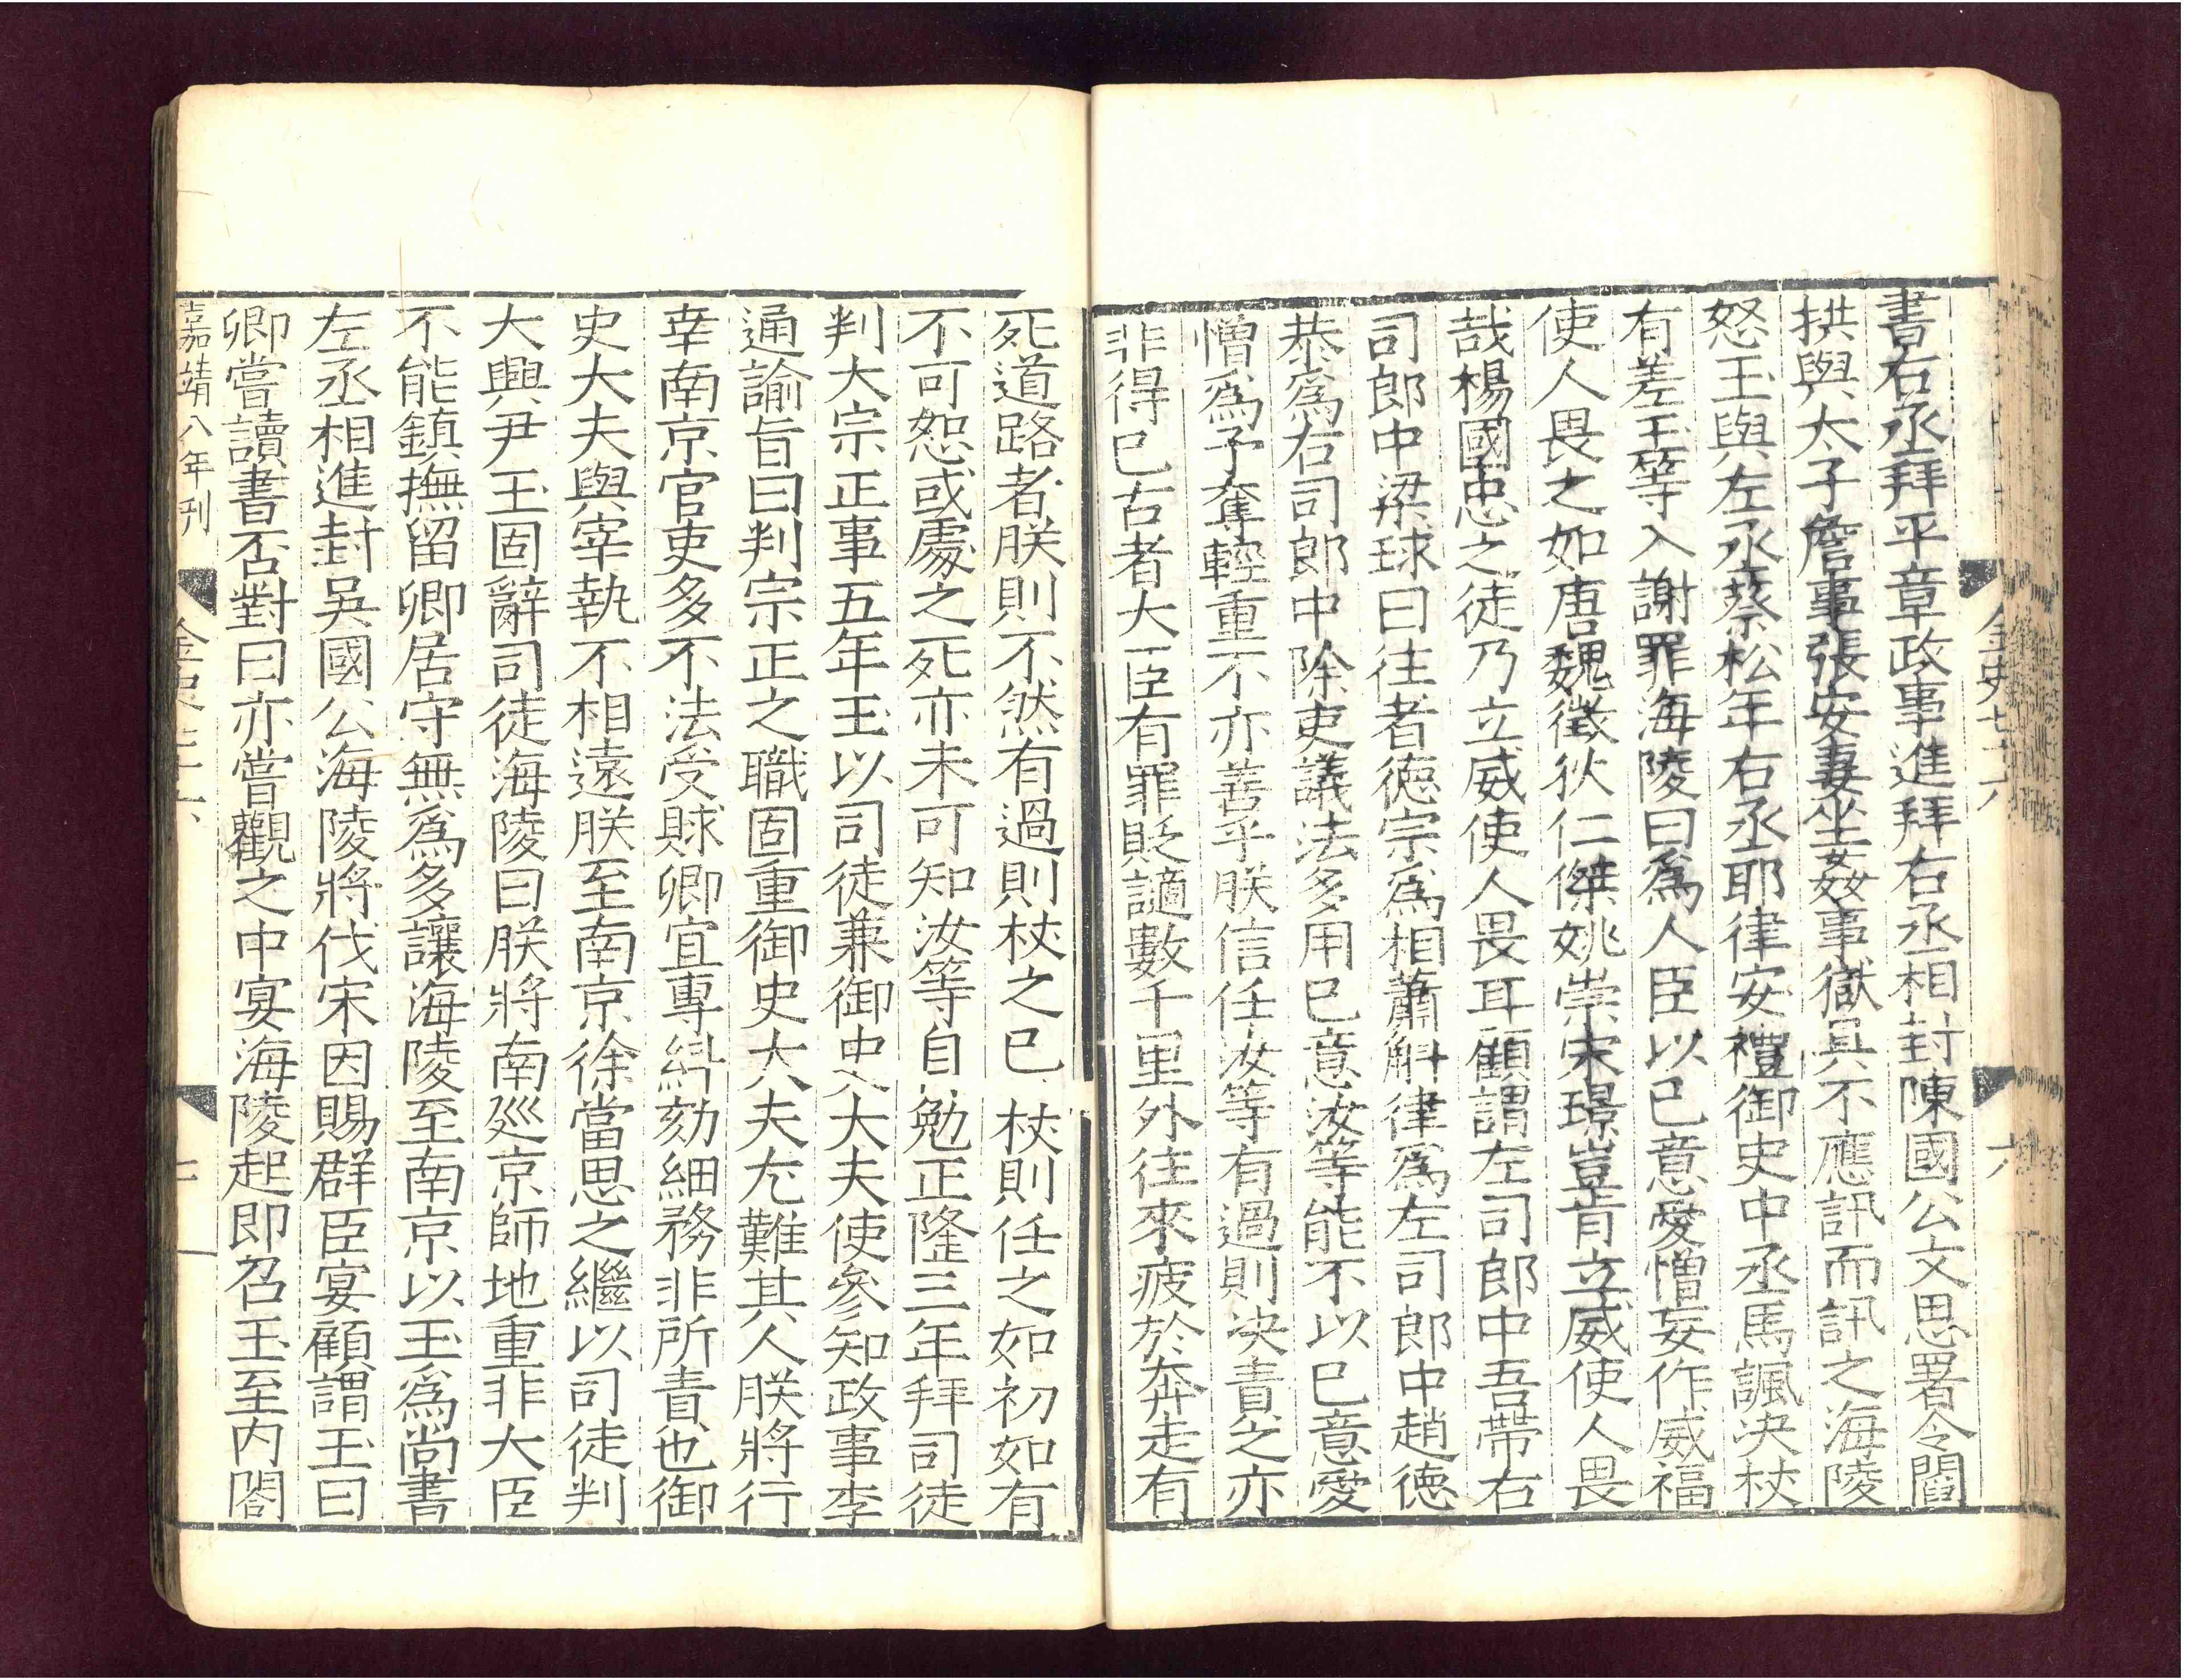 書右丞拜平章政事進拜右丞相封陳國公文思署令閻
拱與太子詹事張安妻坐姦事獄具不應訊而訊之海陵
怒玉與左丞蔡松年右丞耶律安禮御史中丞馬諷決杖
有差玉等入謝罪海陵曰爲人臣以己意愛憎妄作威福
使人畏之如唐魏徵狄仁傑姚崇宋璟豈肯立威使人畏
哉楊國忠之徒乃立威使人畏耳顧謂左司郎中吾帶右
司郎中梁球曰往者德宗爲相蕭斛律爲左司郎中趙德
恭爲右司郎中除吏議法多用己意汝等能不以己意愛
憎爲予奪輕重不亦善乎朕信任汝等有過則决責之亦
非得已古者大臣有罪貶謫數千里外往來疲於奔走有
死道路者朕則不然有過則杖之已杖則任之如初如有
不可恕或處之死亦未可知汝等自勉正隆三年拜司徒
判大宗正事五年玉以司徒兼御史大夫使參知政事李
通諭旨曰判宗正之職固重御史大夫尢難其人朕將行
幸南京官吏多不法受賕卿宜專糾劾細務非所責也御
史大夫與宰執不相遠朕至南京徐當思之繼以司徒判
大興尹玉固辭司徒海陵曰朕將南廵京師地重非大臣
不能鎮撫留卿居守無爲多讓海陵至南京以玉爲尚書
左丞相進封吳國公海陵將伐宋因賜群臣宴顧謂玉曰
卿嘗讀書否對曰亦嘗觀之中宴海陵起即召玉至内閣
嘉靖八年刊
金史七十六
六